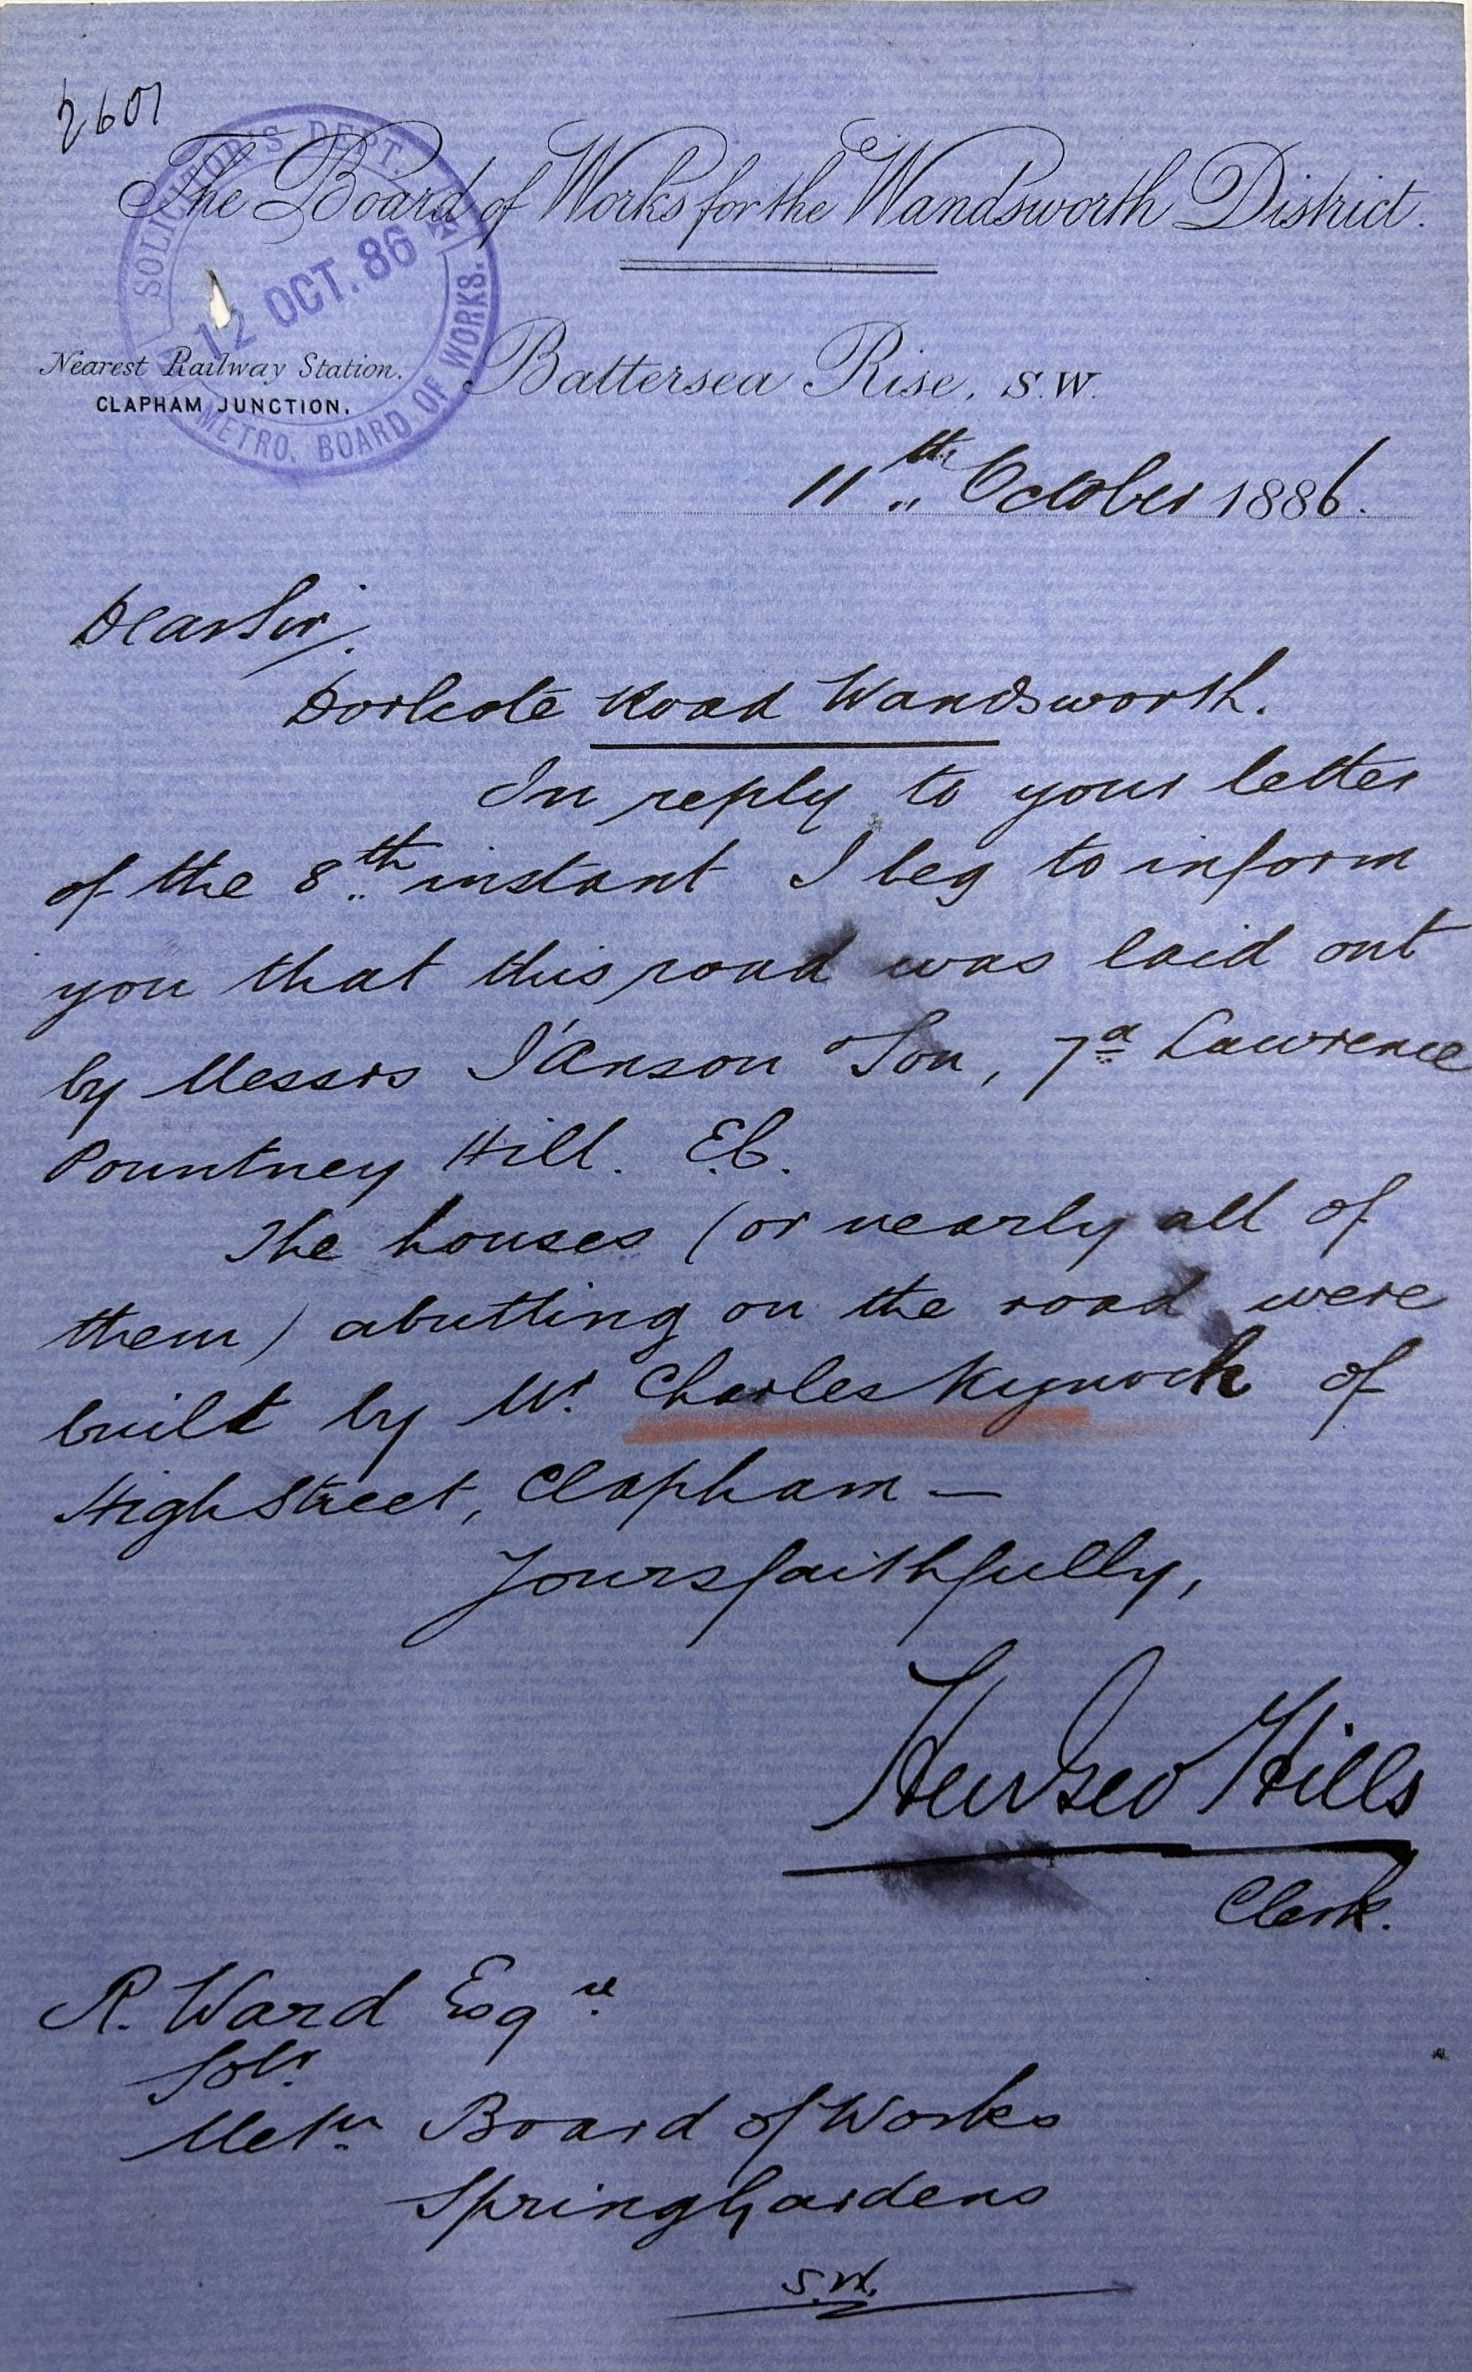 2601
The Board of Works for the Wandsworth District.
SOLICITOR'S DEPT.
12 OCT. 86
METRO. BOARD OF WORKS.
Nearest Railway Station.
CLAPHAM JUNCTION.
Battersea Rise, S.W.
11th October 1886.
Dear Sir,
Dorlcote Road Wandsworth.
In reply to your letter
of the 8th instant I beg to inform
you that this road was laid out
by Messrs I'Anson & Son, 7a Lawrence
Pountney Hill. E.C.
The houses (or nearly all of
them) abutting on the road were
built by Mr. Charles Kynoch of
High Street, Clapham —
Yours faithfully,
Hen Geo Hills
Clerk.
R. Ward Esqre
Solr
Metn Board of Works
Spring Gardens
S.W.